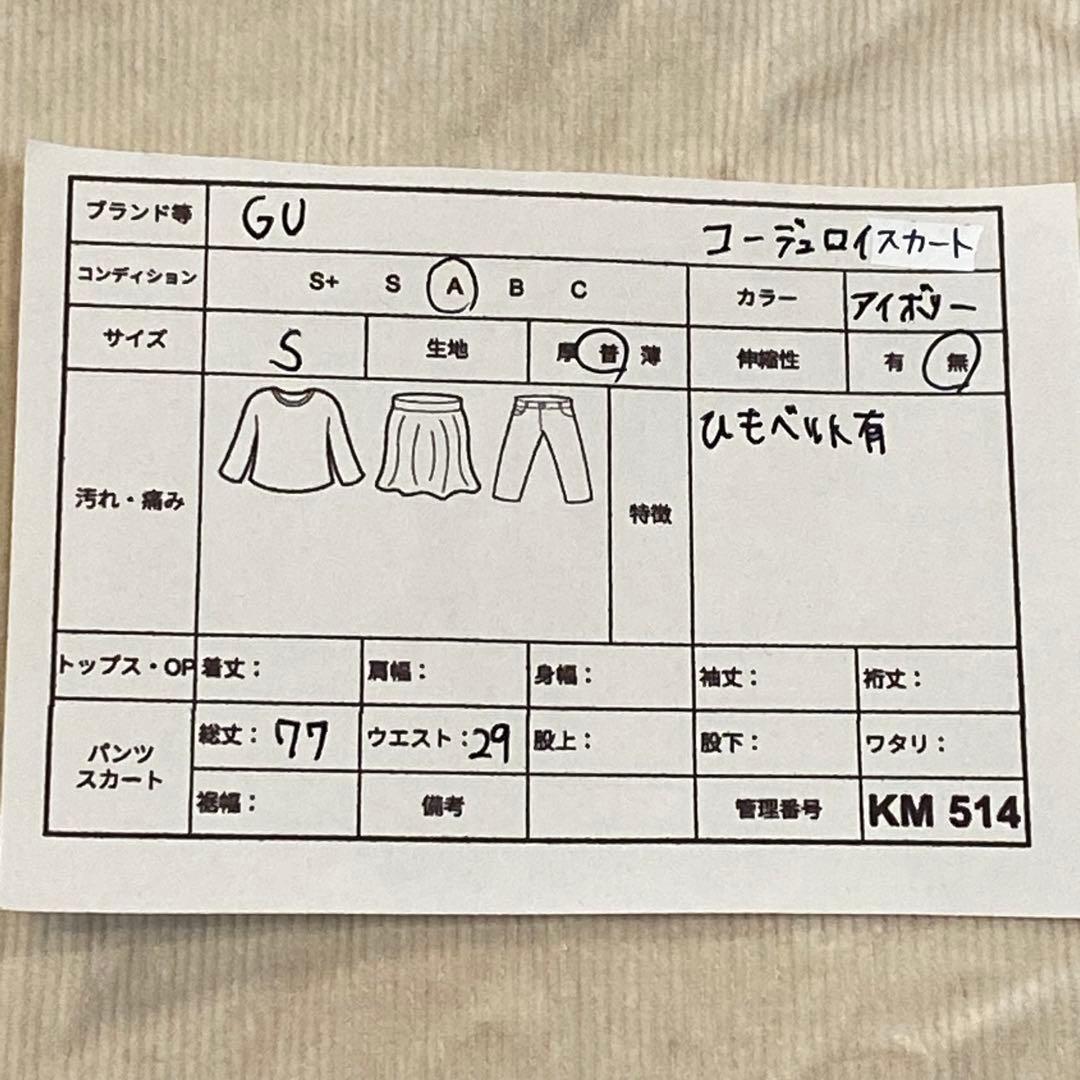 ブランド等 GU コーデュロイスカート
コンディション S+ S A B C カラー アイボリー
サイズ S 生地 厚 普 薄 伸縮性 有 無
汚れ・痛み 特徴 ひもベルト有
トップス・OP 着丈: 肩幅: 身幅: 袖丈: 裄丈:
パンツ
スカート
総丈:77 ウエスト:29 股上: 股下: ワタリ:
裾幅: 備考 管理番号 KM 514